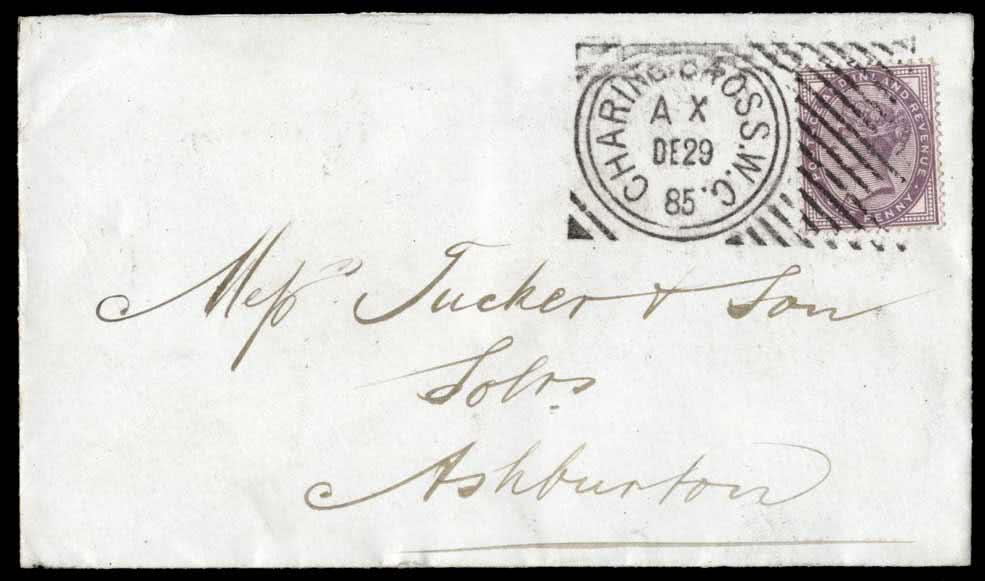 CHARING.CROSS.W.C.
A X
DE29
85
POSTAGE AND INLAND REVENUE
PENNY
Messrs Tucker & Son
Solrs
Ashburton